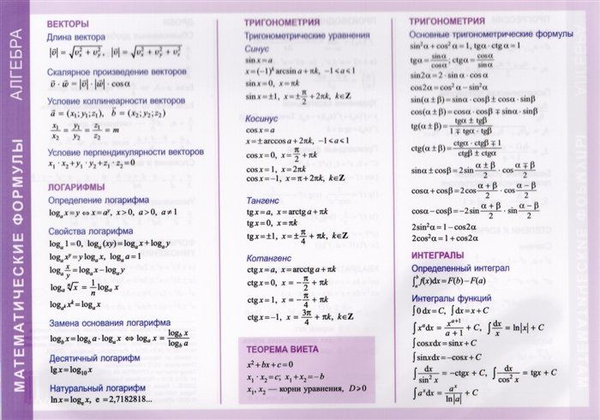 МАТЕМАТИЧЕСКИЕ ФОРМУЛЫ АЛГЕБРА
ВЕКТОРЫ
Длина вектора
|v̄| = √(vₓ² + vᵧ²), |v̄| = √(vₓ² + vᵧ² + v_z²)
Скалярное произведение векторов
v̄ · w̄ = |v̄| · |w̄| · cosα
Условие коллинеарности векторов
ā = (x₁; y₁; z₁), b̄ = (x₂; y₂; z₂)
x₁/x₂ = y₁/y₂ = z₁/z₂ = m
Условие перпендикулярности векторов
x₁ · x₂ + y₁ · y₂ + z₁ · z₂ = 0
ЛОГАРИФМЫ
Определение логарифма
logₐx = y ⇔ x = aʸ, x > 0, a > 0, a ≠ 1
Свойства логарифма
logₐ1 = 0, logₐ(xy) = logₐx + logₐy
logₐxʸ = y logₐx, logₐa = 1
logₐ x/y = logₐx − logₐy
logₐ ⁿ√x = 1/n logₐx
Замена основания логарифма
logₐx = log_b x / log_b a
Десятичный логарифм
lg x = log₁₀x
Натуральный логарифм
ln x = logₑx, e = 2,7182818...
ТРИГОНОМЕТРИЯ
Тригонометрические уравнения
Синус
sin x = a
x = (−1)ᵏ arcsin a + πk, −1 < a < 1
sin x = 0, x = πk
sin x = ±1, x = ±π/2 + 2πk, k∈Z
Косинус
cos x = a
x = ±arccos a + 2πk, −1 < a < 1
cos x = 0, x = π/2 + πk
cos x = 1, x = 2πk
cos x = −1, x = π + 2πk, k∈Z
Тангенс
tg x = a, x = arctg a + πk
tg x = 0, x = πk
tg x = ±1, x = ±π/4 + πk, k∈Z
Котангенс
ctg x = a, x = arcctg a + πk
ctg x = 0, x = −π/2 + πk
ctg x = 1, x = −π/4 + πk
ctg x = −1, x = 3π/4 + πk, k∈Z
ТЕОРЕМА ВИЕТА
x² + bx + c = 0
x₁ · x₂ = c; x₁ + x₂ = −b
x₁, x₂ — корни уравнения, D ⩾ 0
ТРИГОНОМЕТРИЯ
Основные тригонометрические формулы
sin²α + cos²α = 1, tgα · ctgα = 1
tgα = sinα/cosα; ctgα = cosα/sinα
sin2α = 2 · sinα · cosα
cos2α = cos²α − sin²α
sin(α ± β) = sinα · cosβ ± cosα · sinβ
cos(α ± β) = cosα · cosβ ∓ sinα · sinβ
tg(α ± β) = (tgα ± tgβ)/(1 ∓ tgα · tgβ)
ctg(α ± β) = (ctgα · ctgβ ∓ 1)/(ctgβ ± ctgα)
sinα ± cosβ = 2sin (α ± β)/2 · cos (α ∓ β)/2
cosα + cosβ = 2cos (α + β)/2 · cos (α − β)/2
cosα − cosβ = −2sin (α + β)/2 · sin (α − β)/2
2sin²α = 1 − cos2α
2cos²α = 1 + cos2α
ИНТЕГРАЛЫ
Определенный интеграл
∫ₐᵇ f(x)dx = F(b) − F(a)
Интегралы функций
∫0dx = C, ∫dx = x + C
∫xᵃdx = xᵃ⁺¹/(a + 1) + C, ∫dx/x = ln|x| + C
∫cosxdx = sinx + C
∫sinxdx = −cosx + C
∫dx/sin²x = −ctgx + C, ∫dx/cos²x = tgx + C
∫aˣdx = aˣ/ln|a| + C